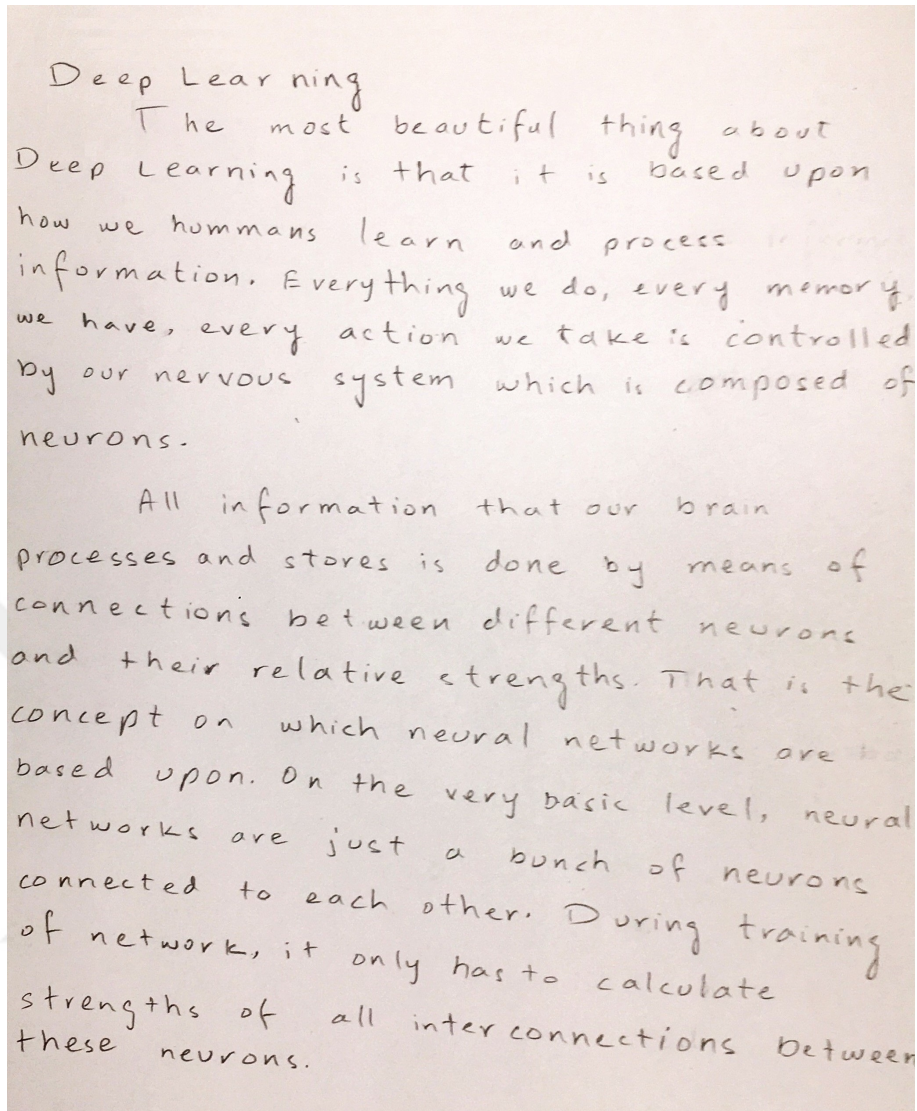 Deep Learning
The most beautiful thing about
Deep Learning is that it is based upon
how we hummans learn and process
information. Everything we do, every memory
we have, every action we take is controlled
by our nervous system which is composed of
neurons.
All information that our brain
processes and stores is done by means of
connections between different neurons
and their relative strengths. That is the
concept on which neural networks are
based upon. On the very basic level, neural
networks are just a bunch of neurons
connected to each other. During training
of network, it only has to calculate
strengths of all interconnections between
these neurons.